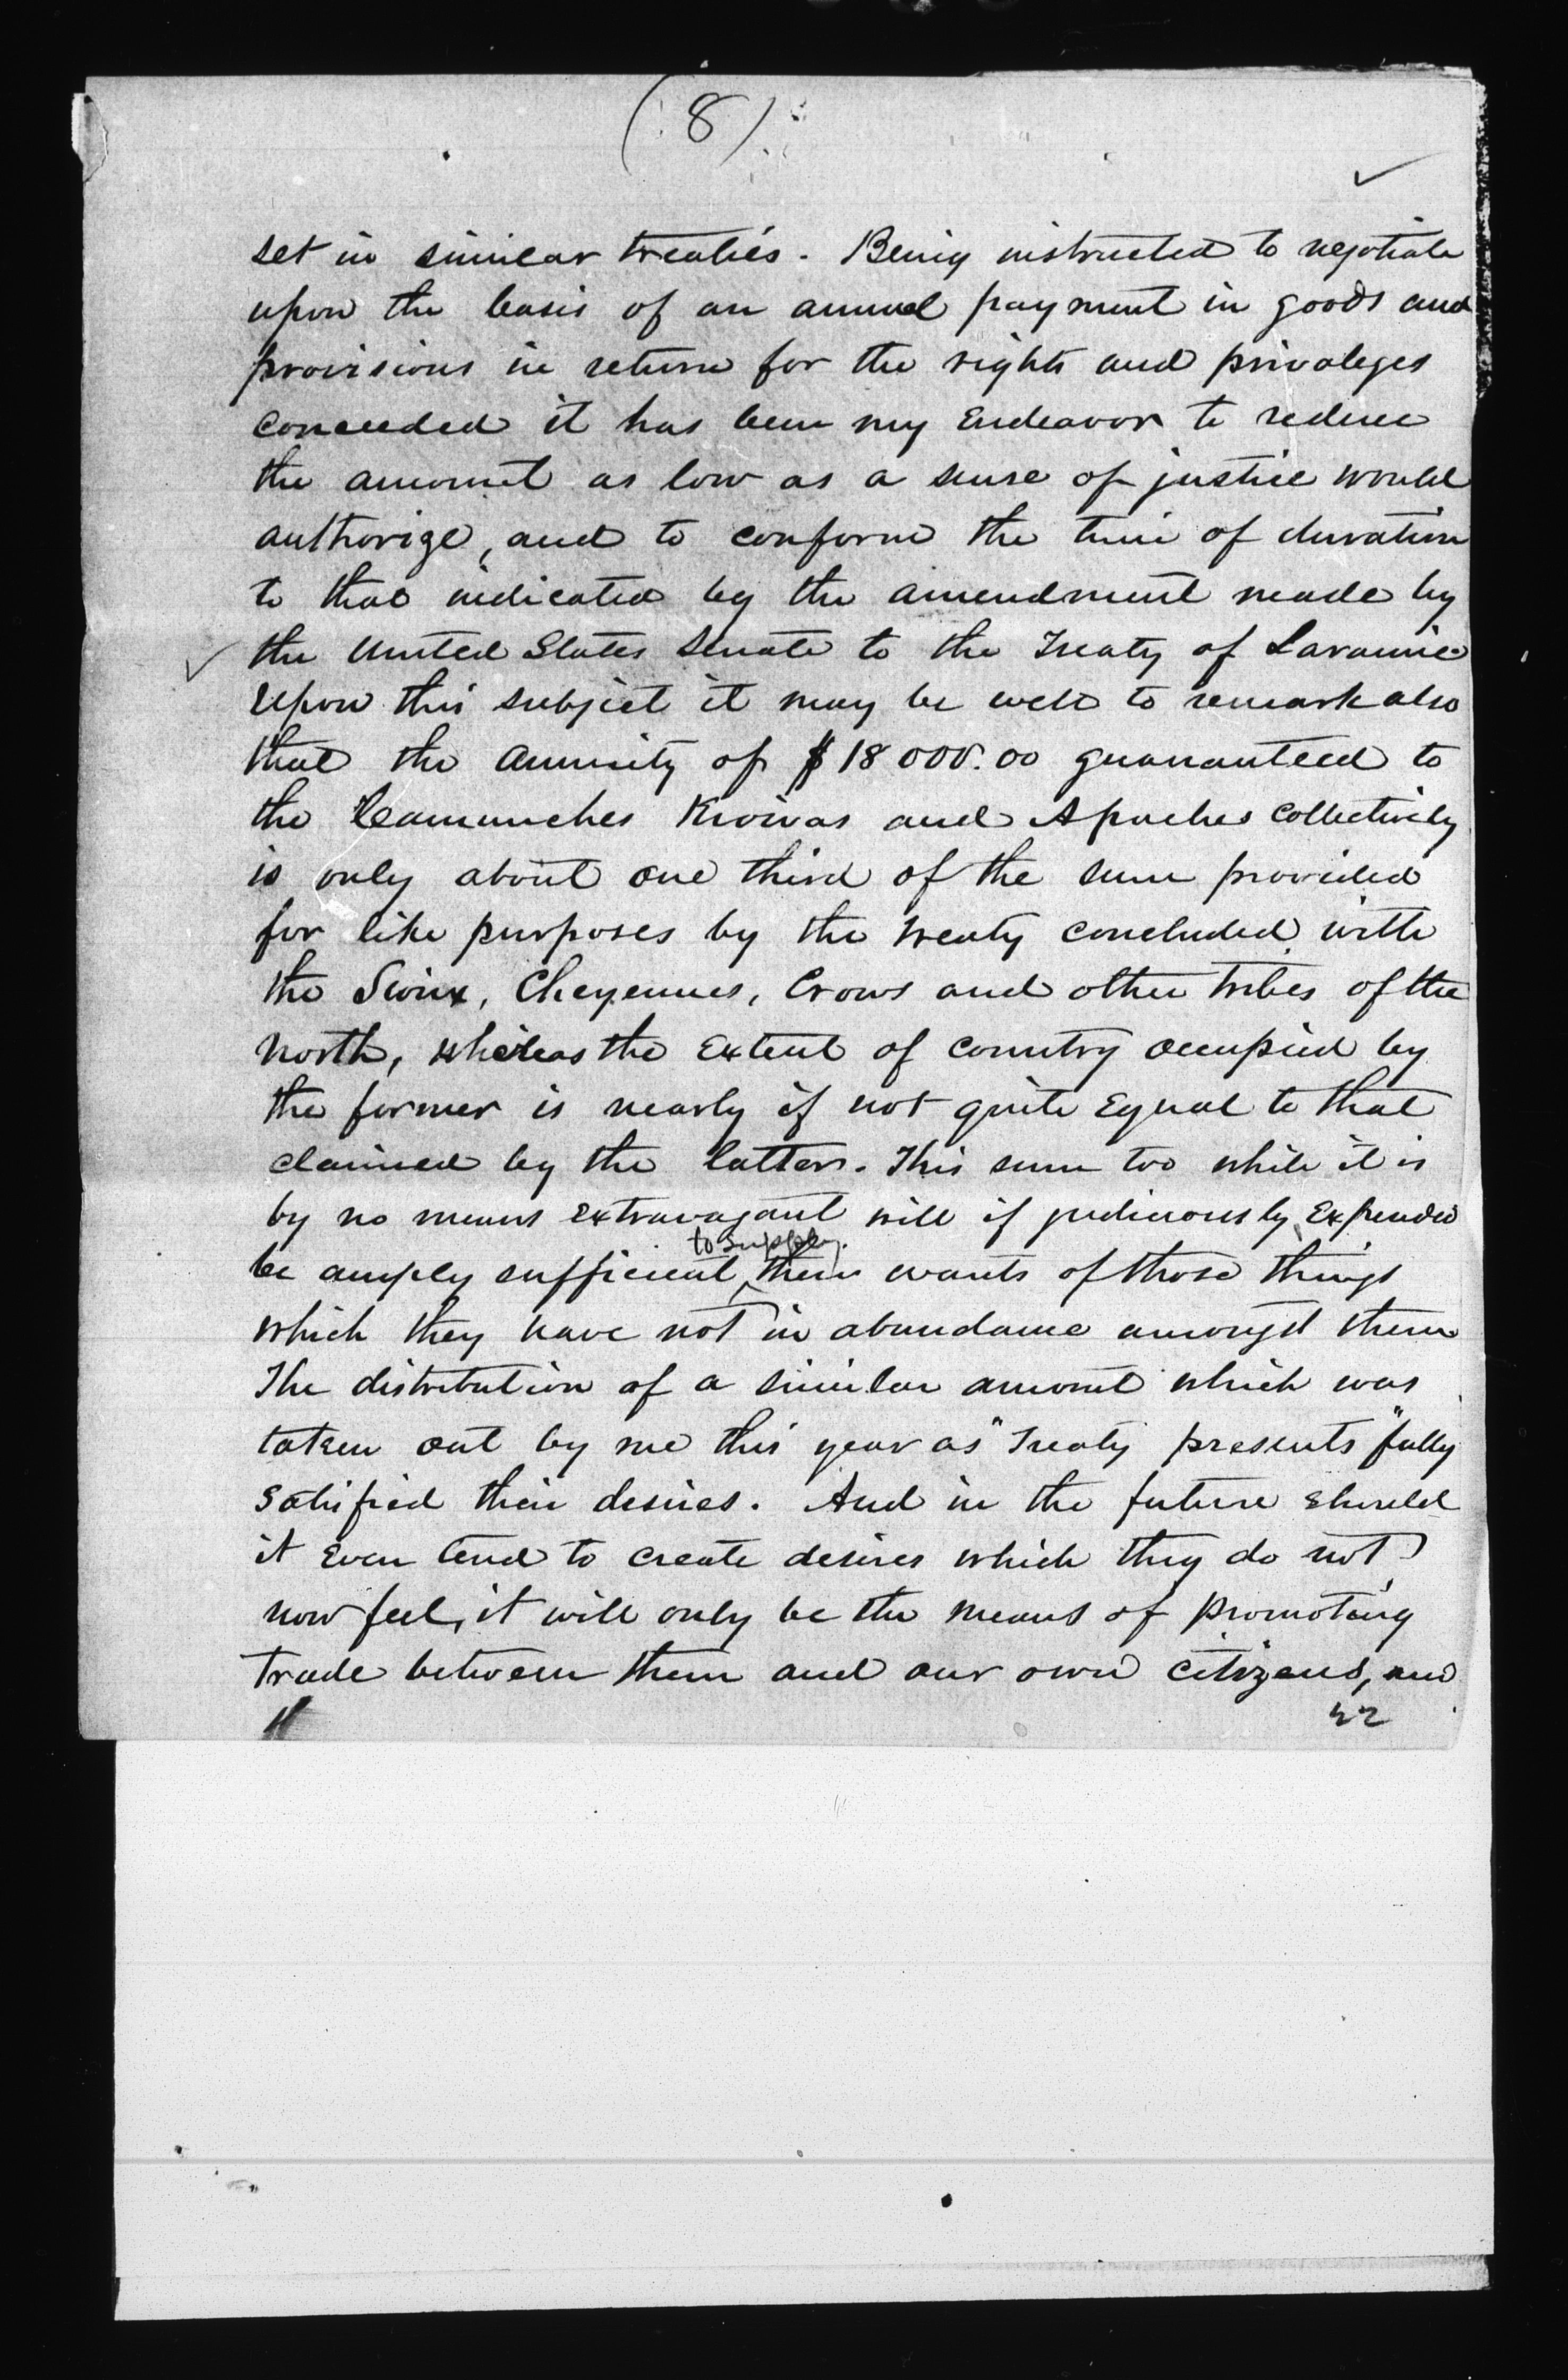 (8)
set in similar treaties. Being instructed to negotiate
upon the basis of an annual payment in goods and
provisions in return for the rights and privaleges
conceeded it has been my Endeavor to reduce
the amount as low as a sense of justice would
authorize, and to conform the time of duration
to that indicated by the amendment made by
the United States Senate to the Treaty of Laramie
Upon this subject it may be well to remark also
that the annuity of $18000.00 guaranteed to
the Camanches Kiowas and Apaches collectively
is only about one third of the sum provided
for like purposes by the treaty concluded with
the Sioux, Cheyennes, Crows and other tribes of the
north, whereas the Extent of country occupied by
the former is nearly if not quite Equal to that
claimed by the latter. This sum too while it is
by no means extravagant will if judiciously Expended
to supply
be amply sufficient their wants of those things
which they have not in abundance amongst them
The distribution of a similar amount which was
taken out by me this year as "Treaty presents" fully
satisfied their desires. And in the future should
it Even tend to create desires which they do not
now feel, it will only be the means of promoting
trade between them and our own citizens, and
22